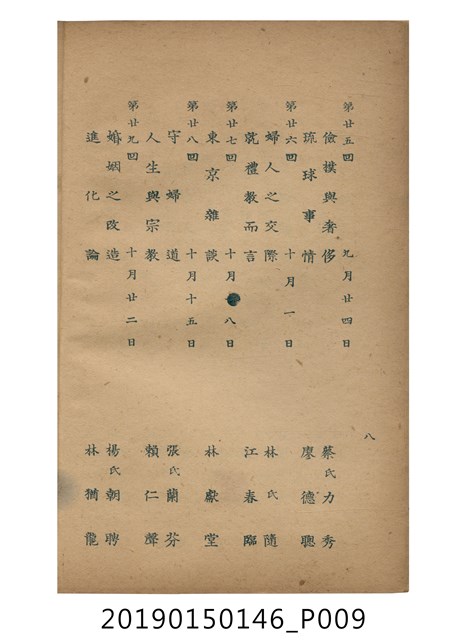 第廿五回 九月廿四日
儉樸與奢侈 蔡氏力秀
琉球事情 廖德聰
第廿六回 十月一日
婦人之交際 林氏隨
就禮教而言 江春臨
第廿七回 十月八日
東京雜談 林獻堂
第廿八回 十月十五日
守婦道 張氏蘭芬
人生與宗教 賴仁聲
第廿九回 十月廿二日
婚姻之改造 楊氏朝聘
進化論 林猶龍
八
20190150146_P009